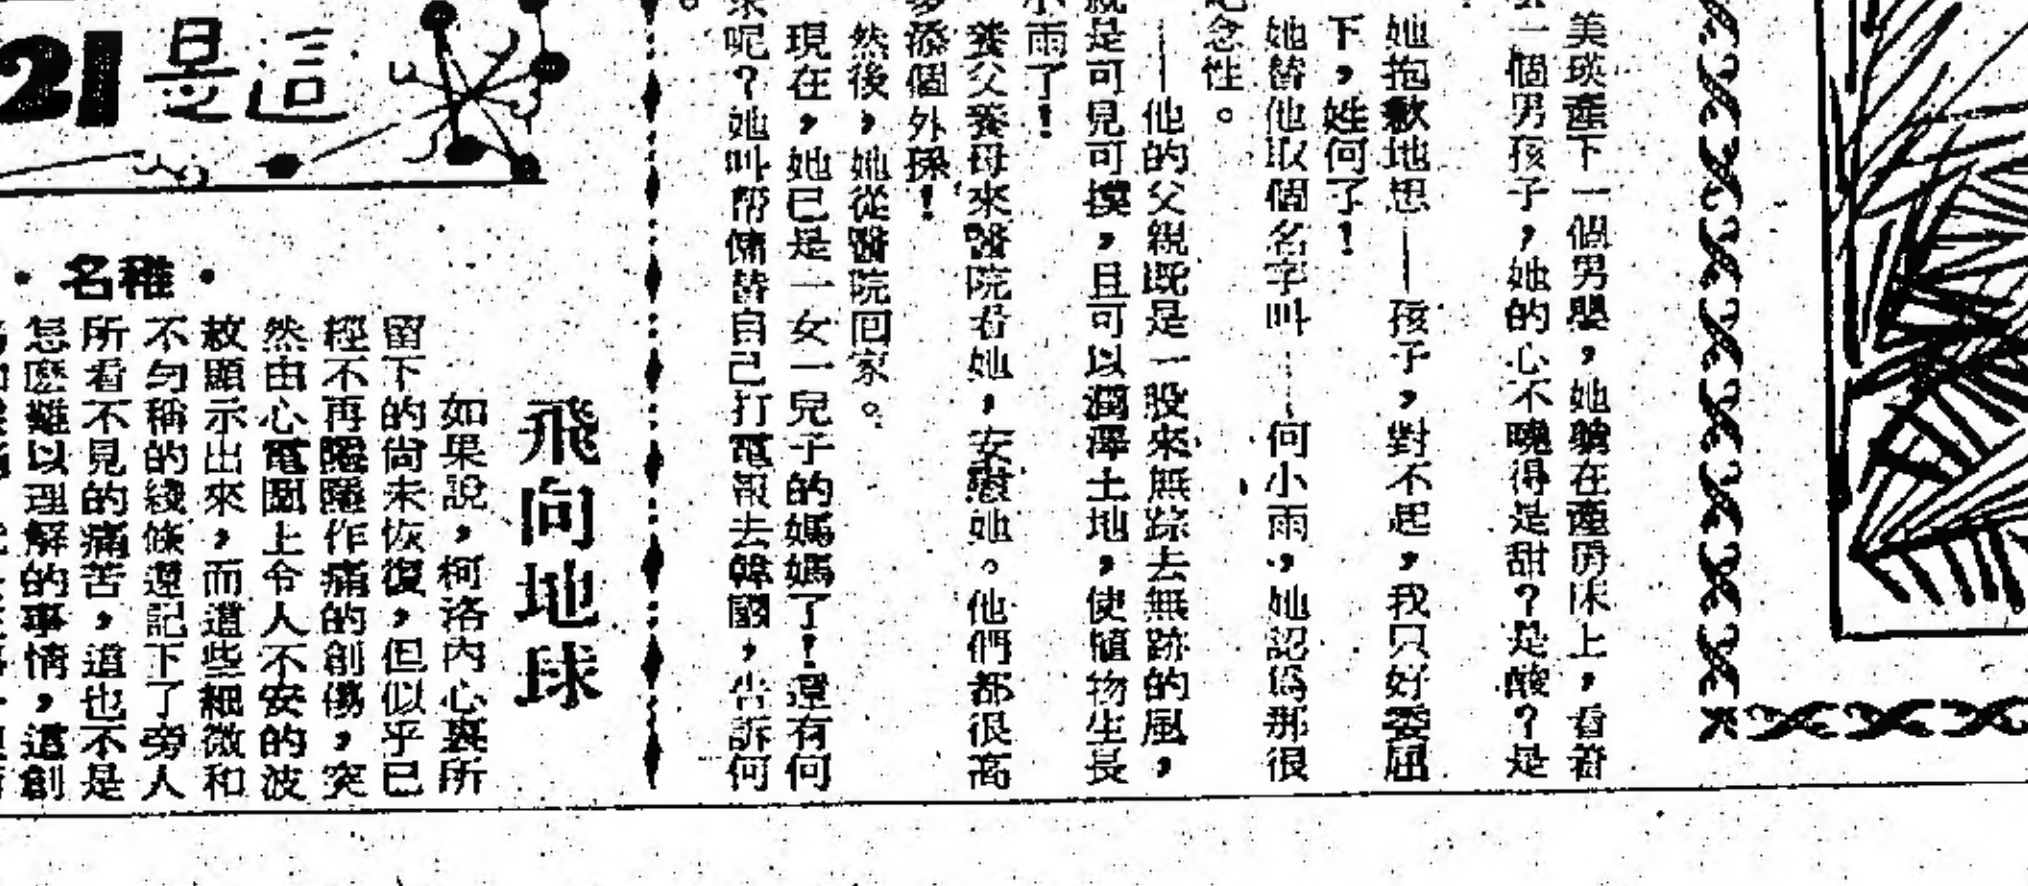 美瑛產下一個男嬰，她躺在產房床上，看着
一個男孩子，她的心不曉得是甜？是酸？是
她抱歉地想——孩子，對不起，我只好委屈
下，姓何了！
她替他取個名字叫——何小雨，她認爲那很
念性。
——他的父親既是一股來無踪去無跡的風，
就是可見可摸，且可以潤澤土地，使植物生長
小雨了！
養父養母來醫院看她，安慰她。他們都很高
多添個外孫！
然後，她從醫院回家。
現在，她已是一女一兒子的媽媽了！還有何
呢？她叫帮傭替自己打電報去韓國，告訴何
。
這是21
飛向地球
·稚名·
如果說，柯洛內心裏所
留下的尚未恢復，但似乎已
經不再隱隱作痛的創傷，突
然由心電圖上令人不安的波
紋顯示出來，而這些細微和
不勻稱的綫條還記下了旁人
所看不見的痛苦，這也不是
怎麽難以理解的事情，這創